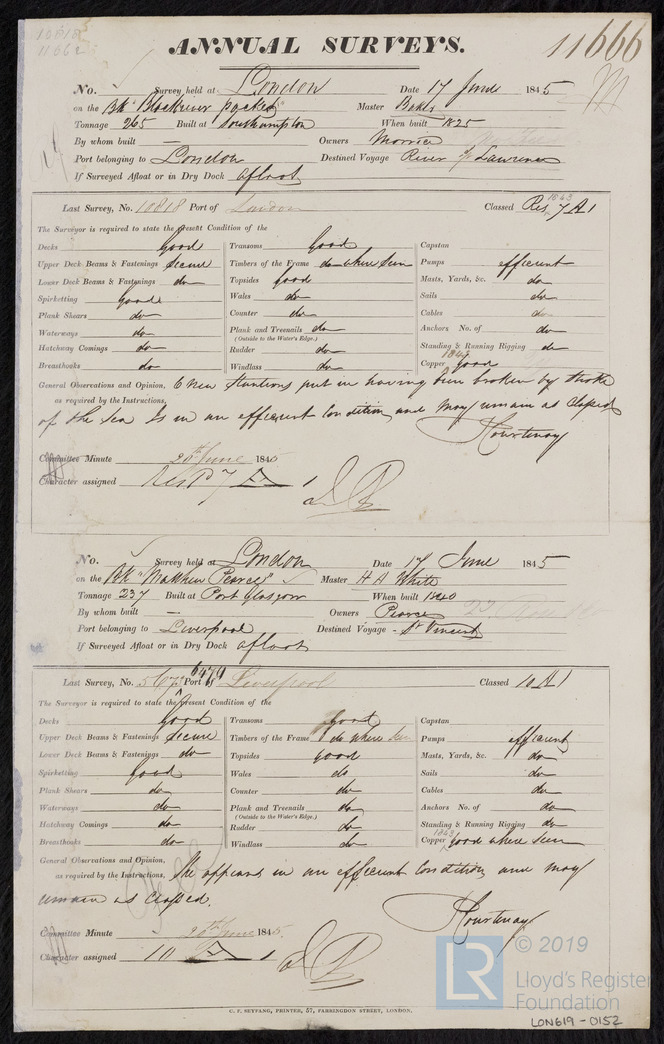 10818
11662
ANNUAL SURVEYS.
11666
No. Survey held at London Date 17 June 1845
on the Bk "Blackriver packet" Master Baker
Tonnage 265 Built at Southampton When built 1825
By whom built — Owners Morrice
Port belonging to London Destined Voyage River St Lawrence
If Surveyed Afloat or in Dry Dock afloat
Last Survey, No. 10818 Port of London Classed Res 1843 7 A1
The Surveyor is required to state the present Condition of the
Decks Good Transoms Good Capstan
Upper Deck Beams & Fastenings Secure Timbers of the Frame do where seen Pumps efficient
Lower Deck Beams & Fastenings do Topsides good Masts, Yards, &c. do
Spirketting Good Wales do Sails do
Plank Shears do Counter do Cables do
Waterways do Plank and Treenails do Anchors No. of do
(Outside to the Water's Edge.)
Hatchway Comings do Rudder do Standing & Running Rigging do
Breasthooks do Windlass do Copper 1842 good
General Observations and Opinion, 6 new Stantions put in having been broken by stroke
as required by the Instructions,
of the sea Is in an efficient Condition and may remain as Classed
Courtenay
Committee Minute 20th June 1845
Character assigned Rest 7 A 1
No. Survey held at London Date 17 June 1845
on the Bk "Matthew Pearce" Master H A White
Tonnage 237 Built at Port Glasgow When built 1840
By whom built — Owners Pearce
Port belonging to Liverpool Destined Voyage - St Vincent
If Surveyed Afloat or in Dry Dock afloat
Last Survey, No. 5673 6479 Port of Liverpool Classed 10 A1
The Surveyor is required to state the present Condition of the
Decks Good Transoms Good Capstan
Upper Deck Beams & Fastenings Secure Timbers of the Frame do where seen Pumps efficient
Lower Deck Beams & Fastenings do Topsides good Masts, Yards, &c. do
Spirketting Good Wales do Sails do
Plank Shears do Counter do Cables do
Waterways do Plank and Treenails do Anchors No. of do
(Outside to the Water's Edge.)
Hatchway Comings do Rudder do Standing & Running Rigging do
Breasthooks do Windlass do Copper 1843 good where seen
General Observations and Opinion,
as required by the Instructions, She appears in an efficient Condition and may
remain as Classed.
Courtenay
Committee Minute 20th June 1845.
Character assigned 10 A 1
C. F. SEYFANG, PRINTER, 57, FARRINGDON STREET, LONDON.
LR
© 2019
Lloyd's Register
Foundation
LON619-0152